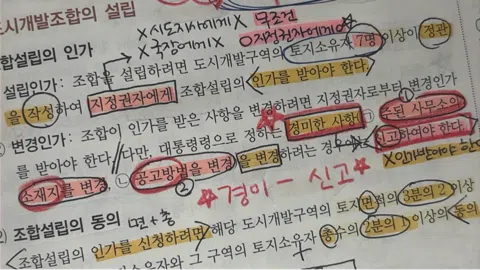 도시개발조합의 설립
X 시도지사에게 X 무조건
조합설립의 인가 X 국장에게 X O 지정권자에게 O
설립인가: 조합을 설립하려면 도시개발구역의 토지소유자 7명 이상이 정관
을 작성하여 지정권자에게 조합설립의 인가를 받아야 한다.
변경인가: 조합이 인가를 받은 사항을 변경하려면 지정권자로부터 변경인가
를 받아야 한다. 다만, 대통령령으로 정하는 경미한 사항( ㉠ 주된 사무소의
소재지를 변경, ㉡ 공고방법을 변경)을 변경하려는 경우 신고하여야 한다.
② X 인가받아야 한다
☆ 경미 - 신고 ☆
2) 조합설립의 동의 면+총
조합설립의 인가를 신청하려면 해당 도시개발구역의 토지면적의 3분의 2 이상
토지소유자와 그 구역의 토지소유자 총수의 2분의 1 이상의 동의